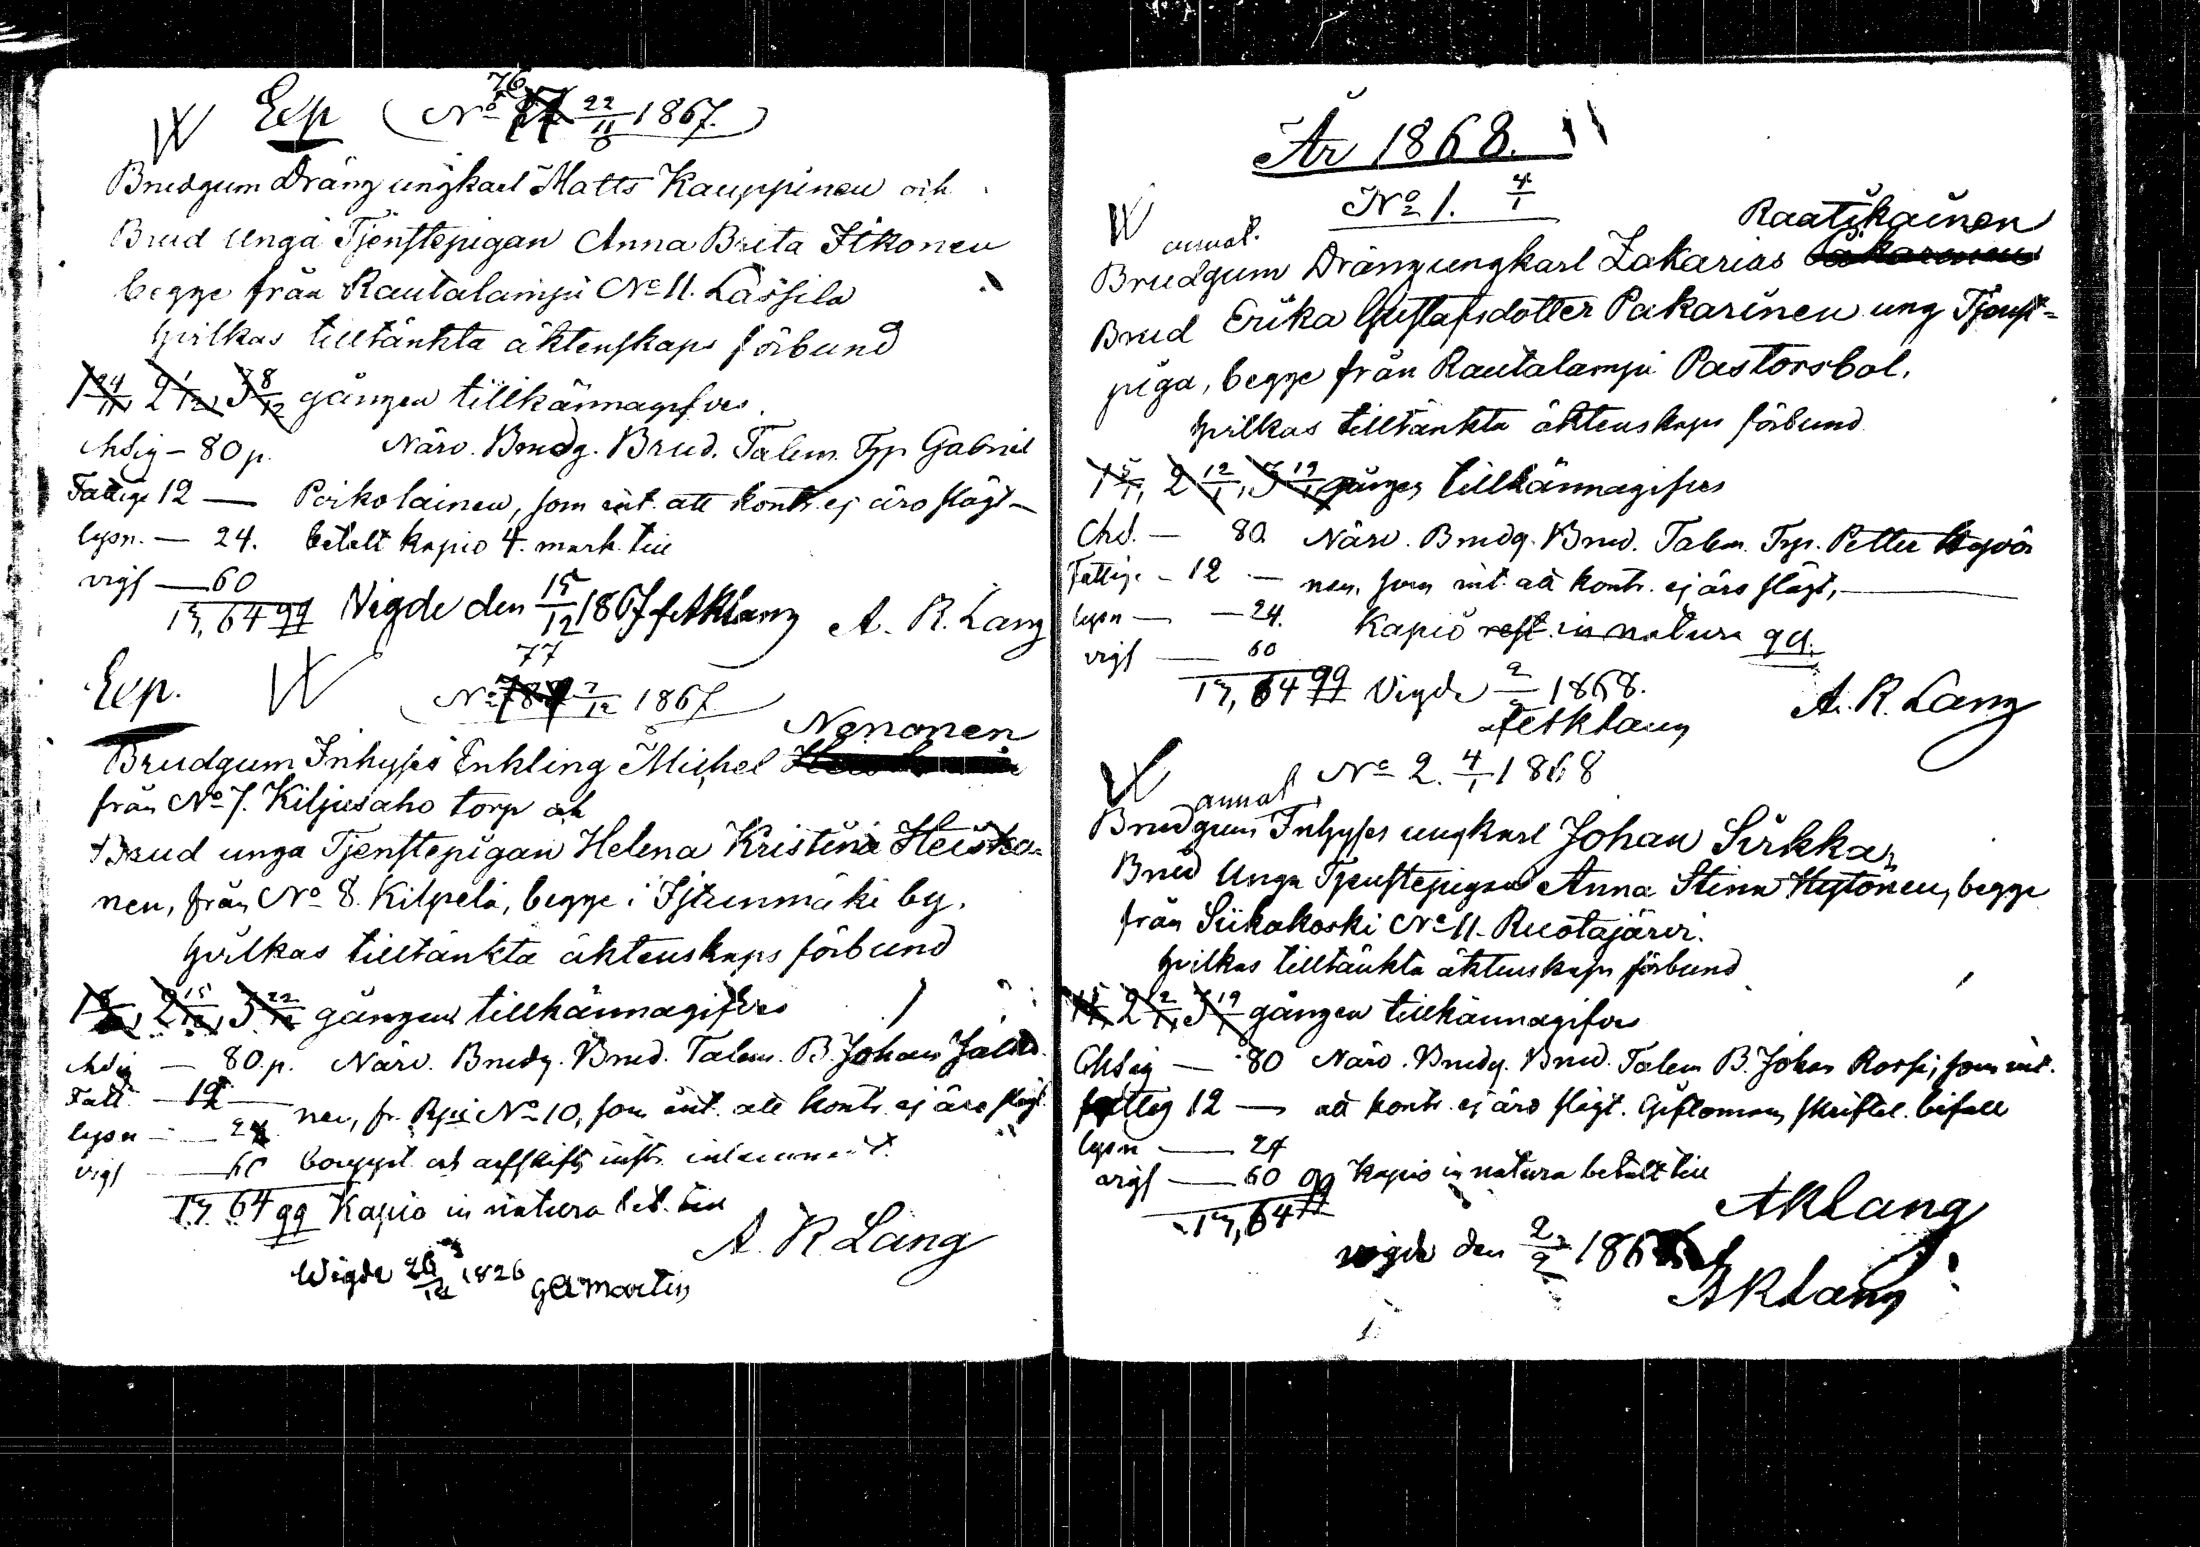 W Exp (No 76 22/11 1867.)
Brudgum Dräng ungkarl Matts Kauppinen och
Brud unga Tjenstepigan Anna Brita Itkonen
begge från Rautalampi No 11. Lässilä
hvilkas tilltänkta äktenskaps förbund
1 24/11, 2 1/12, 3 8/12 gången tillkännagifves.
Närv. Brudg. Brud. Talem. Trp Gabriel
80 p.
Fattige 12 — Poikolainen, som int. att kontr. ej äro slägt —
lysn. — 24. betalt kapio 4. mark. till
vigs — 60
1 m, 64 Vigde den 15/12 1867 A. R. Lang
A. R. Lang
Exp. W No 77 7/12 1867.
Nenonen
Brudgum Inhyses Enkling Michel
från No 7. Kiljusaho torp och
Brud unga Tjenstepigan Helena Kristina Heiska-
nen, från No 8. Kilpelä, begge i Istunmäki by.
hvilkas tilltänkta äktenskaps förbund
2 15/12, 3 22/12 gången tillkännagifves
80. p. Närv. Brudg. Brud. Talem. B. Johan
Fatt. — 12 — nen, fr. Rpi No 10, som int. att kontr. ej äro slägt.
lysn — 24
vigs — 60 bouppt. och arfskifts instr.
1 m. 64 Kapio in natura bet. till
A. R Lang
Wigde 26/12 1826 G A Martin
År 1868.
No 1. 4/1
W annot. Raatikainen
Brudgum Drängungkarl Zakarias
Brud Erika Gustafsdotter Pakarinen ung Tjenst-
piga, begge från Rautalampi Pastorsbol.
hvilkas tilltänkta äktenskaps förbund
1 5/1, 2 12/1, 3 19/1 gången tillkännagifves
Chd. — 80. Närv. Brudg. Brud. Talem. Trp. Petter Hyvö
Fattige — 12 — nen, som int. att kontr. ej äro slägt, —
lysn — 24. Kapio rest. in natura
vigs — 60
1 m, 64 Vigde 2/2 1868.
A. R. Lang
A. R. Lang
W annot. No 2. 4/1 1868
Brudgum Inhyses ungkarl Johan Sirkka,
Brud Unga Tjenstepigan Anna Stina Hytönen, begge
från Siikakoski No 11. Ruotajärvi.
hvilkas tilltänkta äktenskaps förbund
1 5/1, 2 12/1, 3 19/1 gången tillkännagifves
80 Närv. Brudg. Brud. Talem B. Johan Rossi, som int.
fattig 12 — att kontr. ej äro slägt. Giftomans skriftel. bifall
lysn — 24
vigs — 60 Kapio in natura betalt till
1 m, 64
A R Lang
vigde den 2/2 186
A R Lang